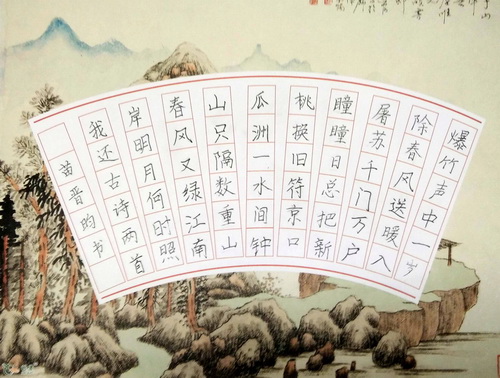 爆竹声中一岁
除春风送暖入
屠苏千门万户
瞳瞳日总把新
桃换旧符京口
瓜洲一水间钟
山只隔数重山
春风又绿江南
岸明月何时照
我还古诗两首
苗晋昀书